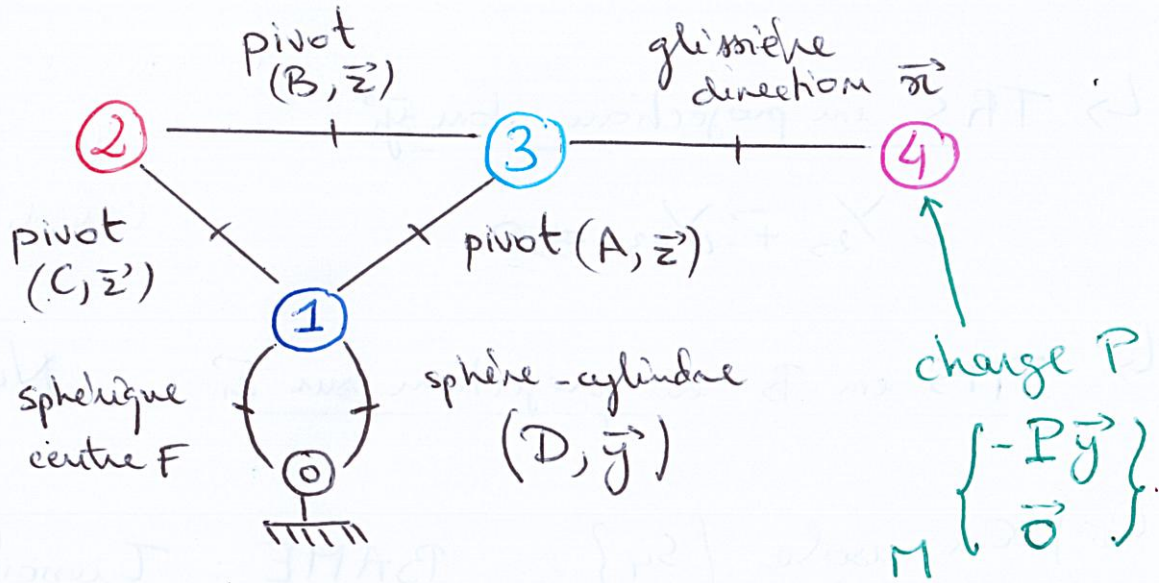 pivot
(B, z⃗)
glissière
direction x⃗
2
3
4
pivot
(C, z⃗)
pivot (A, z⃗)
1
charge P
sphérique
centre F
sphère-cylindre
(D, y⃗)
0
{-P y⃗
0⃗}
M